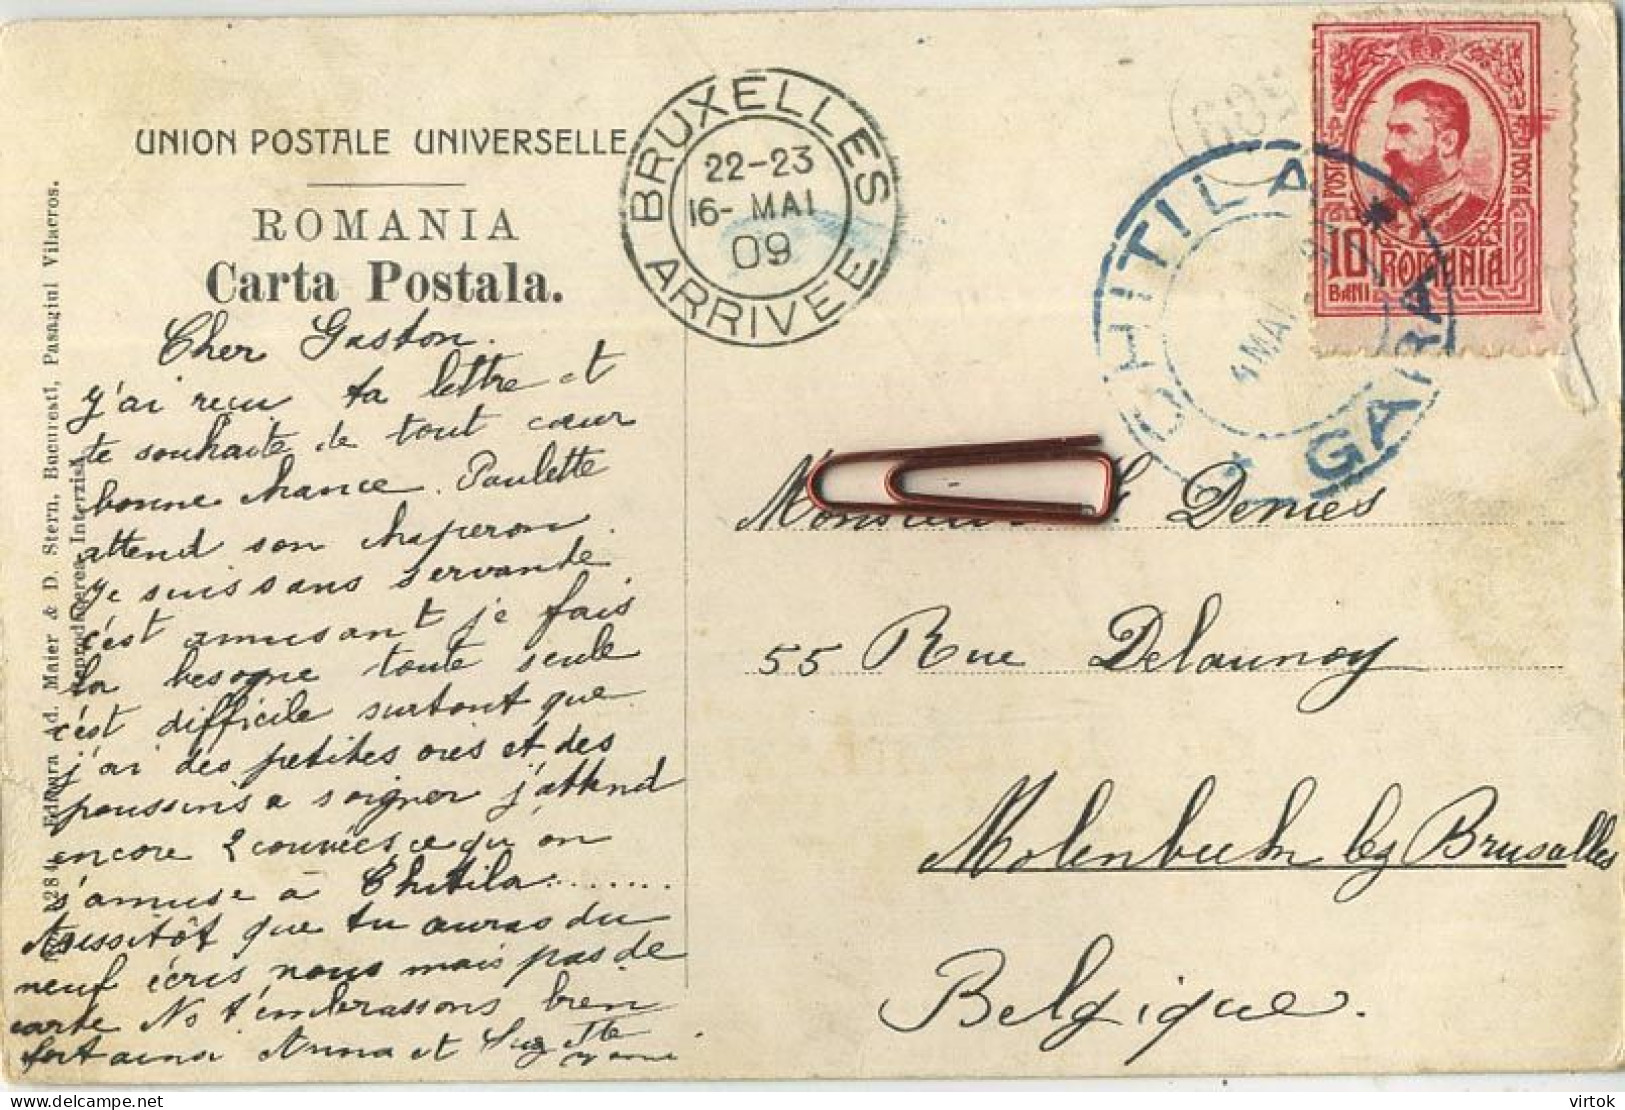 UNION POSTALE UNIVERSELLE
ROMANIA
Carta Postala.
Cher Gaston.
J'ai reçu ta lettre et
te souhaite de tout cœur
bonne chance. Paulette
attend son chaperon.
Je suis sans servande
c'est amusant je fais
la besogne toute seule
c'est difficile surtout que
j'ai des petites oies et des
poussins a soigner j'attend
encore 2 couvées ce qu'on
s'amuse à Chitila........
Aussitôt que tu auras du
neuf écris nous mais pas de
carte Ns t'embrassons bien
fort ainsi Anna et
Ad. Maier & D. Stern, Bucuresti, Pasagiul Vilacros.
Reproducerea Interzisă
BRUXELLES
22-23
16- MAI
09
ARRIVEE
CHITILA
MAI
GARA
POSTA
POSTA
10
BANI
ROMANIA
Monsieur Denies
55 Rue Delaunoy
Molenbeek lez Bruxalles
Belgique.
virtok